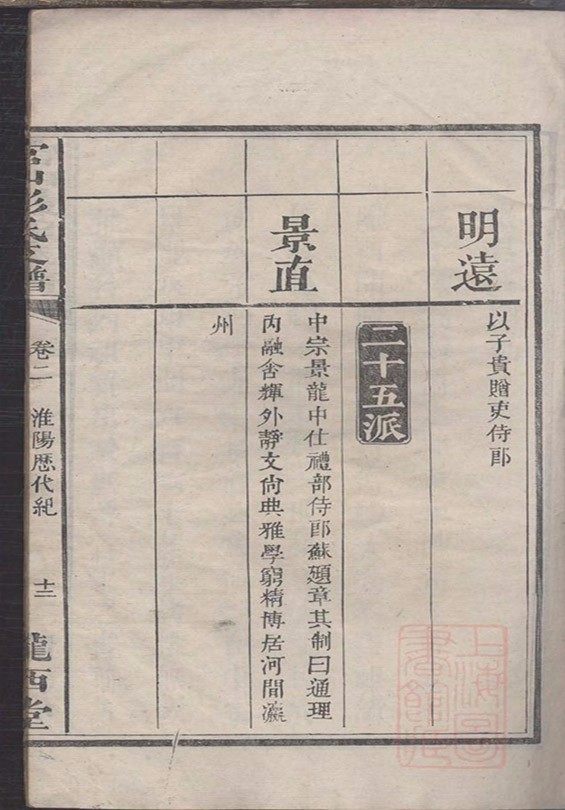 明遠
以子貴贈吏侍郎
二十五派
景直
中宗景龍中仕禮部侍郎蘇頲章其制曰通理
內融含輝外靜文尚典雅學窮精博居河間瀛
州
彭氏支譜
卷二
淮陽歷代紀
十三
隴西堂
上海圖書館